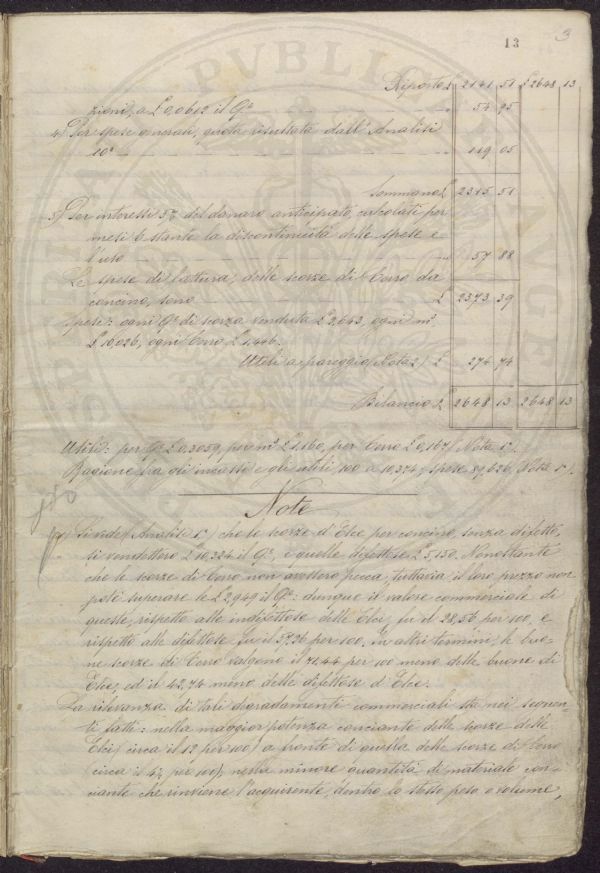 13 3
Riporto £ 2141 51 £ 2648 13
zioni, a £ 0,0612 il Qle 54 95
4.) Per spese generali, quota risultata dall'Analisi
10a 119 05
Sommano £ 2315 51
5.) Per interessi 5% del danaro anticipato, calcolati per
mesi 6 stante la discontinuità delle spese e
l'uso 57 88
Le spese di fattura, delle scorze di Cerro da
concino, sono £ 2373 39
Spese: ogni Qle di scorza venduta £ 2,643, ogni m.c.
£ 10,026, ogni Cerro £ 1,446.
Utili a pareggio (Nota 2) £ 274 74
Bilancio £ 2648 13 2648 13
Utili: per Qle £ 0,3059, per m.c. £ 1,160, per Cerro £ 0,167 (Nota 1a).
Ragione fra gli incassi e gli utili, 100 a 10,374; spese 89,626, (Nota 1a).
Note
1a) Si vede (Analisi 1a) che le scorze d'Elce per concino, senza difetto,
si vendettero £ 10,324 il Qle, e quelle difettose £ 5,150. Nonostante
che le scorze di Cerro non avessero pecca, tuttavia il loro prezzo non
potè superare le £ 2,949 il Qle: dunque il valore commerciale di
queste, rispetto alle indifettose delle Elci, fu il 28,56 per 100, e
rispetto alle difettose, fu il 57,26 per 100. In altri termini, le buo-
ne scorze di Cerro valgono il 71,44 per 100 meno delle buone di
Elce, ed il 42,74 meno delle difettose d'Elce.
La rilevanza di tali digradamente commerciali sta nei seguen-
ti fatti: nella maggior potenza conciante delle scorze delle
Elci (circa il 12 per 100) a fronte di quella delle scorze di Cerro
(circa il 4½ per 100), nella minore quantità di materiale con-
ciante che rinviene l'acquirente, dentro lo stesso peso o volume,